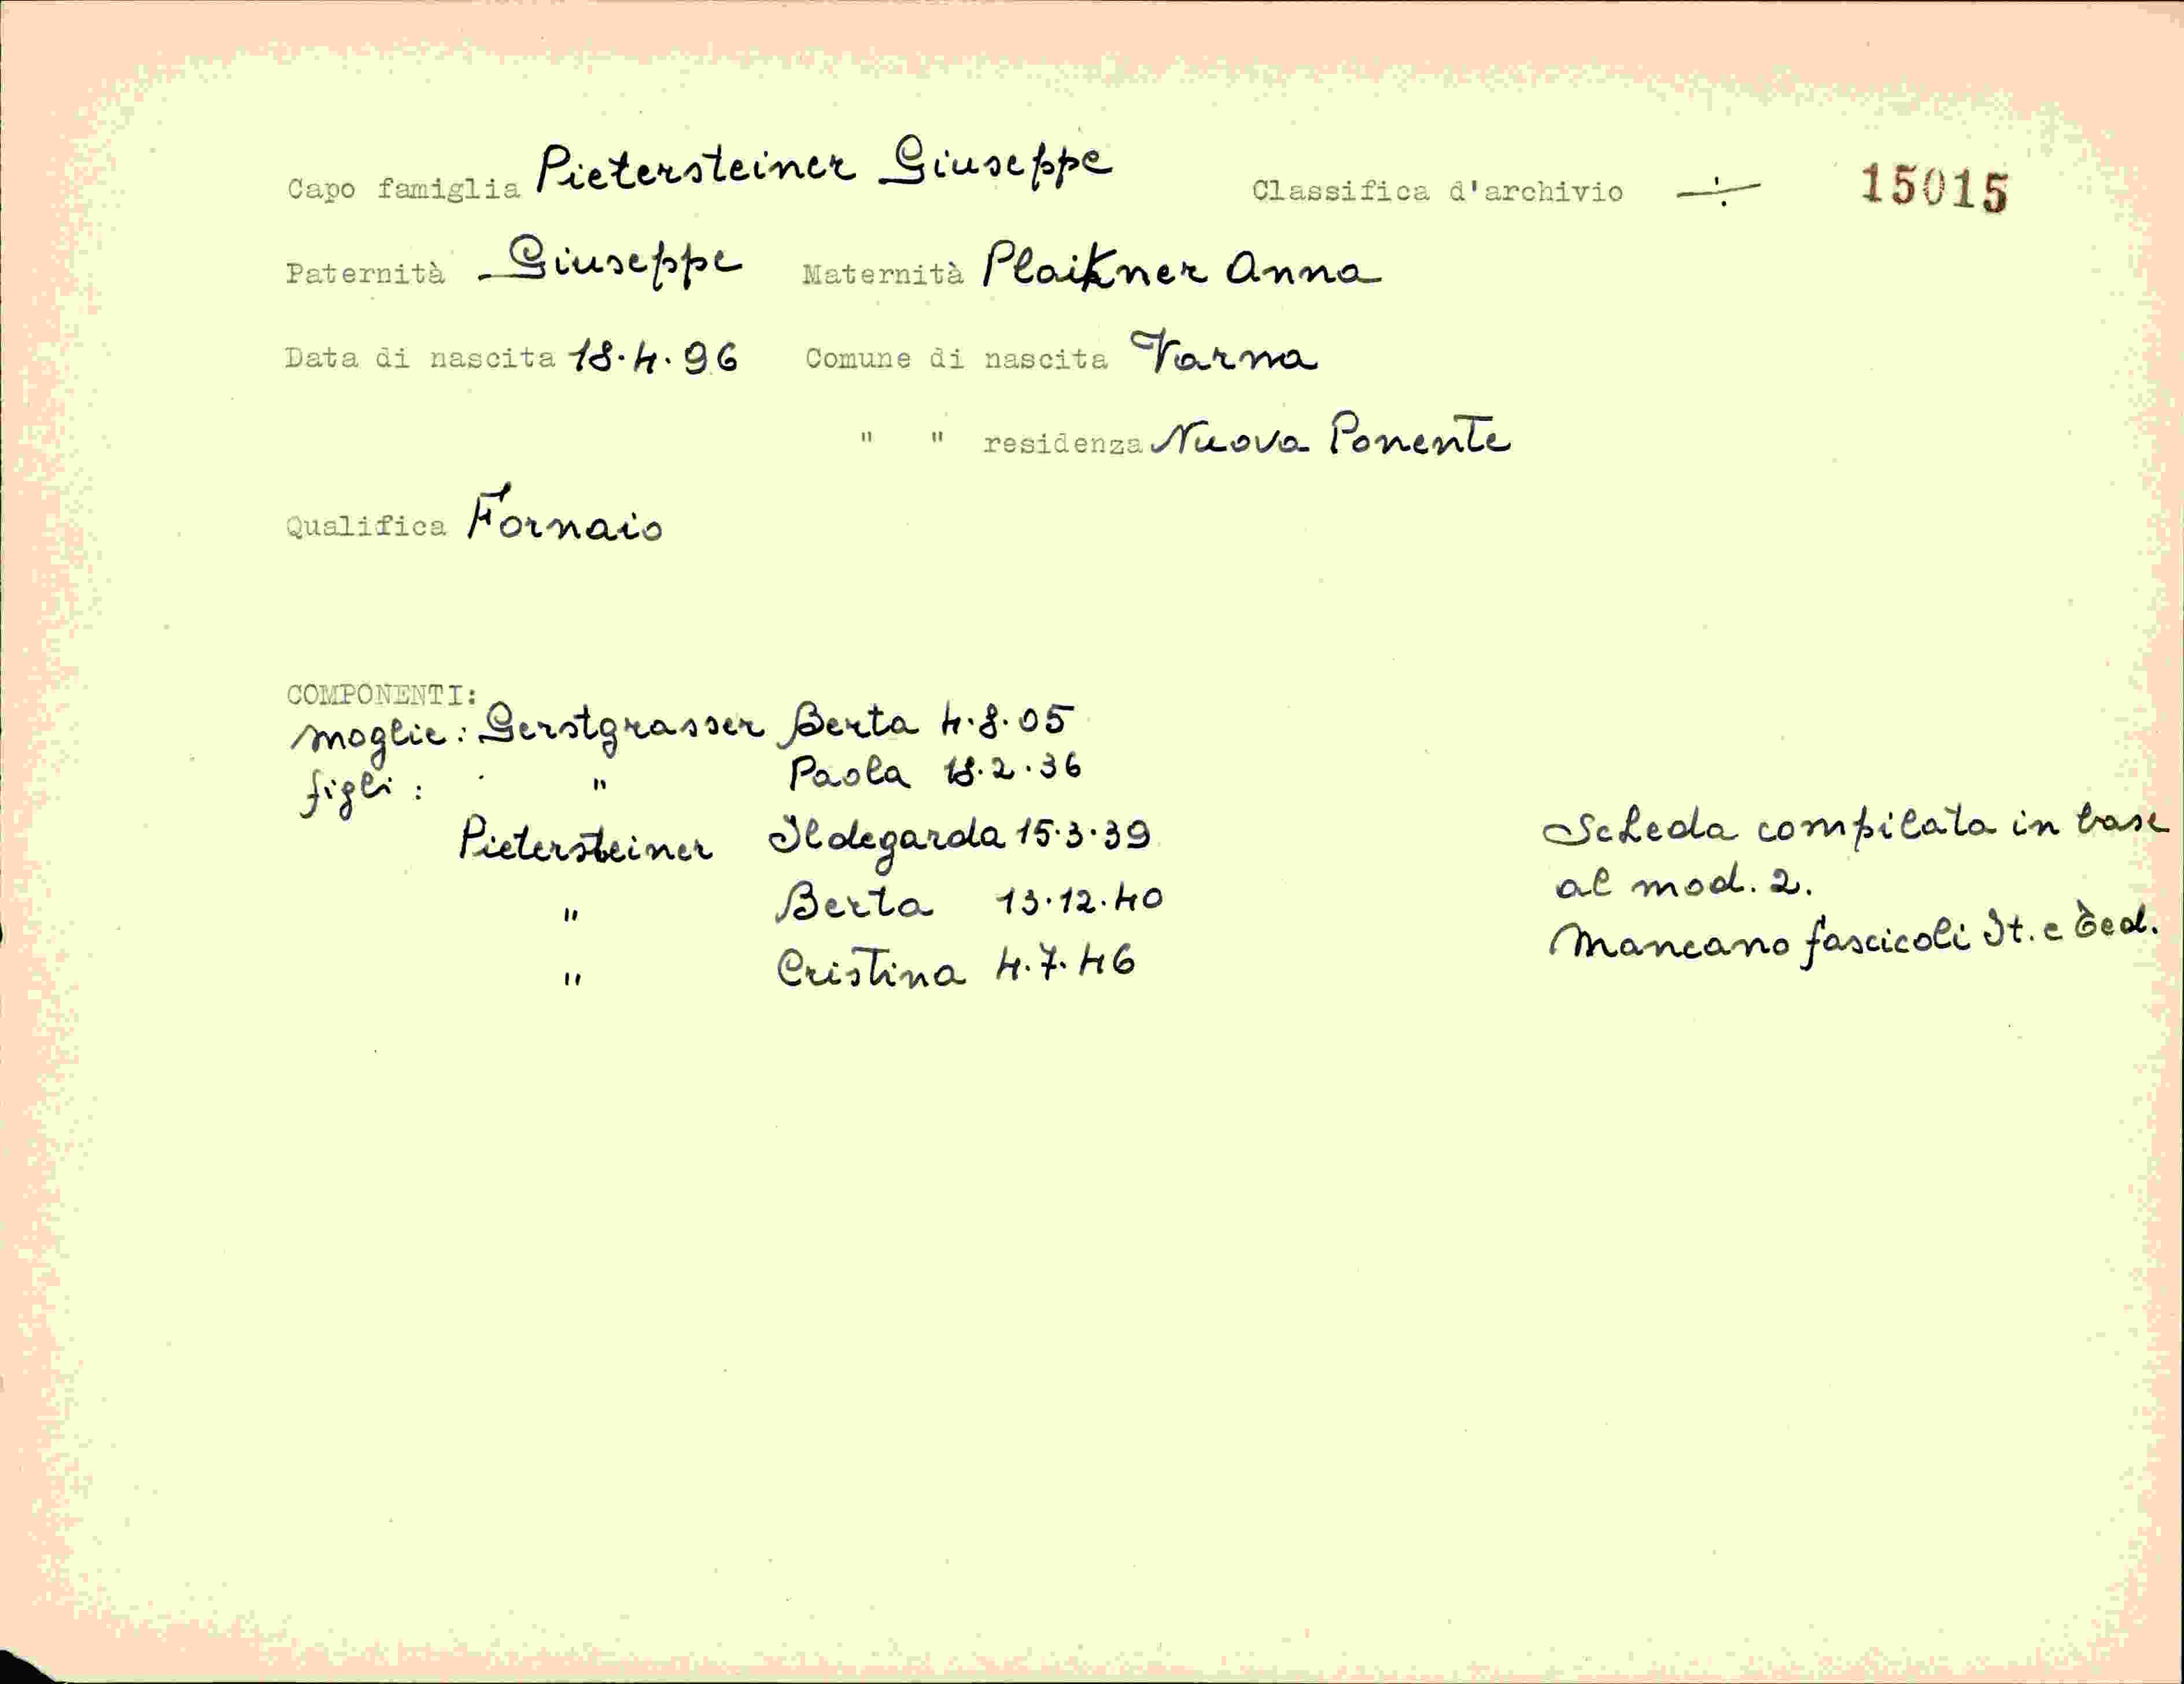 Capo famiglia Pietersteiner Giuseppe Classifica d'archivio ÷ 15015
Paternità Giuseppe Maternità Plaikner Anna
Data di nascita 18.4.96 Comune di nascita Varna
" " residenza Nuova Ponente
Qualifica Fornaio
COMPONENTI:
moglie: Gerstgrasser Berta 4.8.05
figli: " Paola 18.2.36
Pietersteiner Ildegarda 15.3.39
" Berta 13.12.40
" Cristina 4.7.46
Scheda compilata in base
al mod. 2.
Mancano fascicoli It. e Ted.